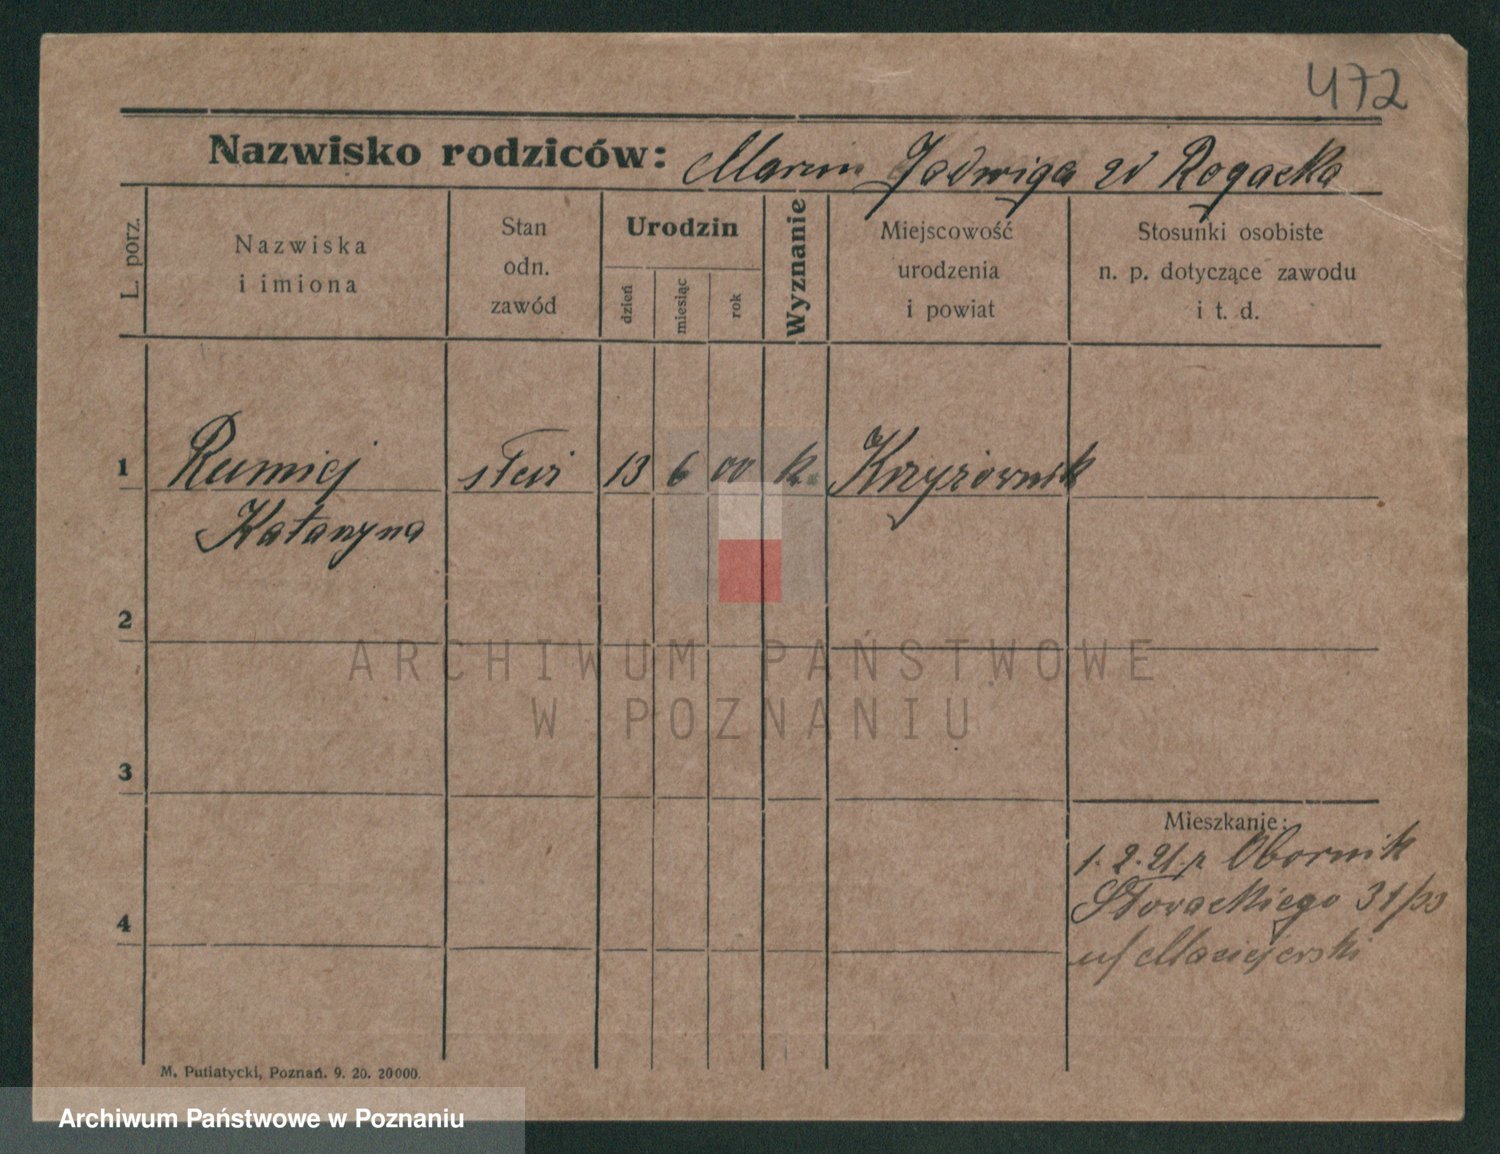 472
Nazwisko rodziców: Marcin Jadwiga zd Rogacka
L. porz.
Nazwiska
i imiona
Stan
odn.
zawód
Urodzin
dzień
miesiąc
rok
Wyznanie
Miejscowość
urodzenia
i powiat
Stosunki osobiste
n. p. dotyczące zawodu
i t. d.
1 Rumiej 13 6 00 k. Krzyżownik
Katarzyna
2
ARCHIWUM PAŃSTWOWE
W POZNANIU
3
Mieszkanie:
1. 2. 21. p Obornik
Słowackiego 31/33
4
u/ Maciejewski
M. Putiatycki, Poznań. 9. 20. 20000.
Archiwum Państwowe w Poznaniu